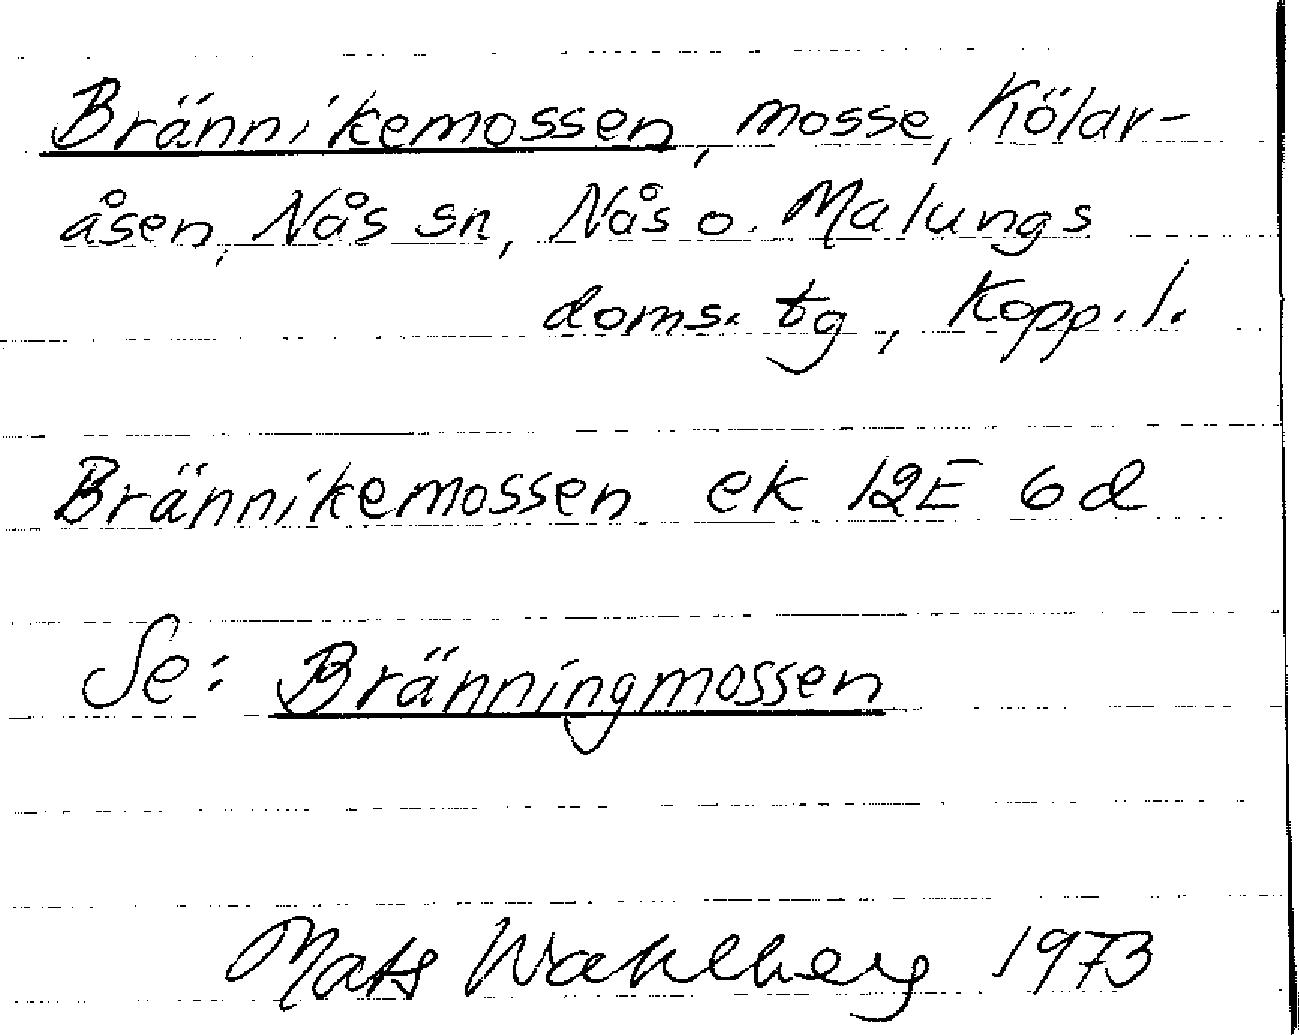 Brännikemossen, mosse, Kölar-
åsen, Nås sn, Nås o. Malungs
doms. tg, Kopp. l.
Brännikemossen ek 12E 6d
Se: Bränningmossen
Mats Wahlberg 1973